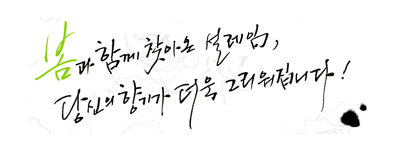 봄과 함께 찾아온 설레임,
당신의 향기가 더욱 그리워집니다!